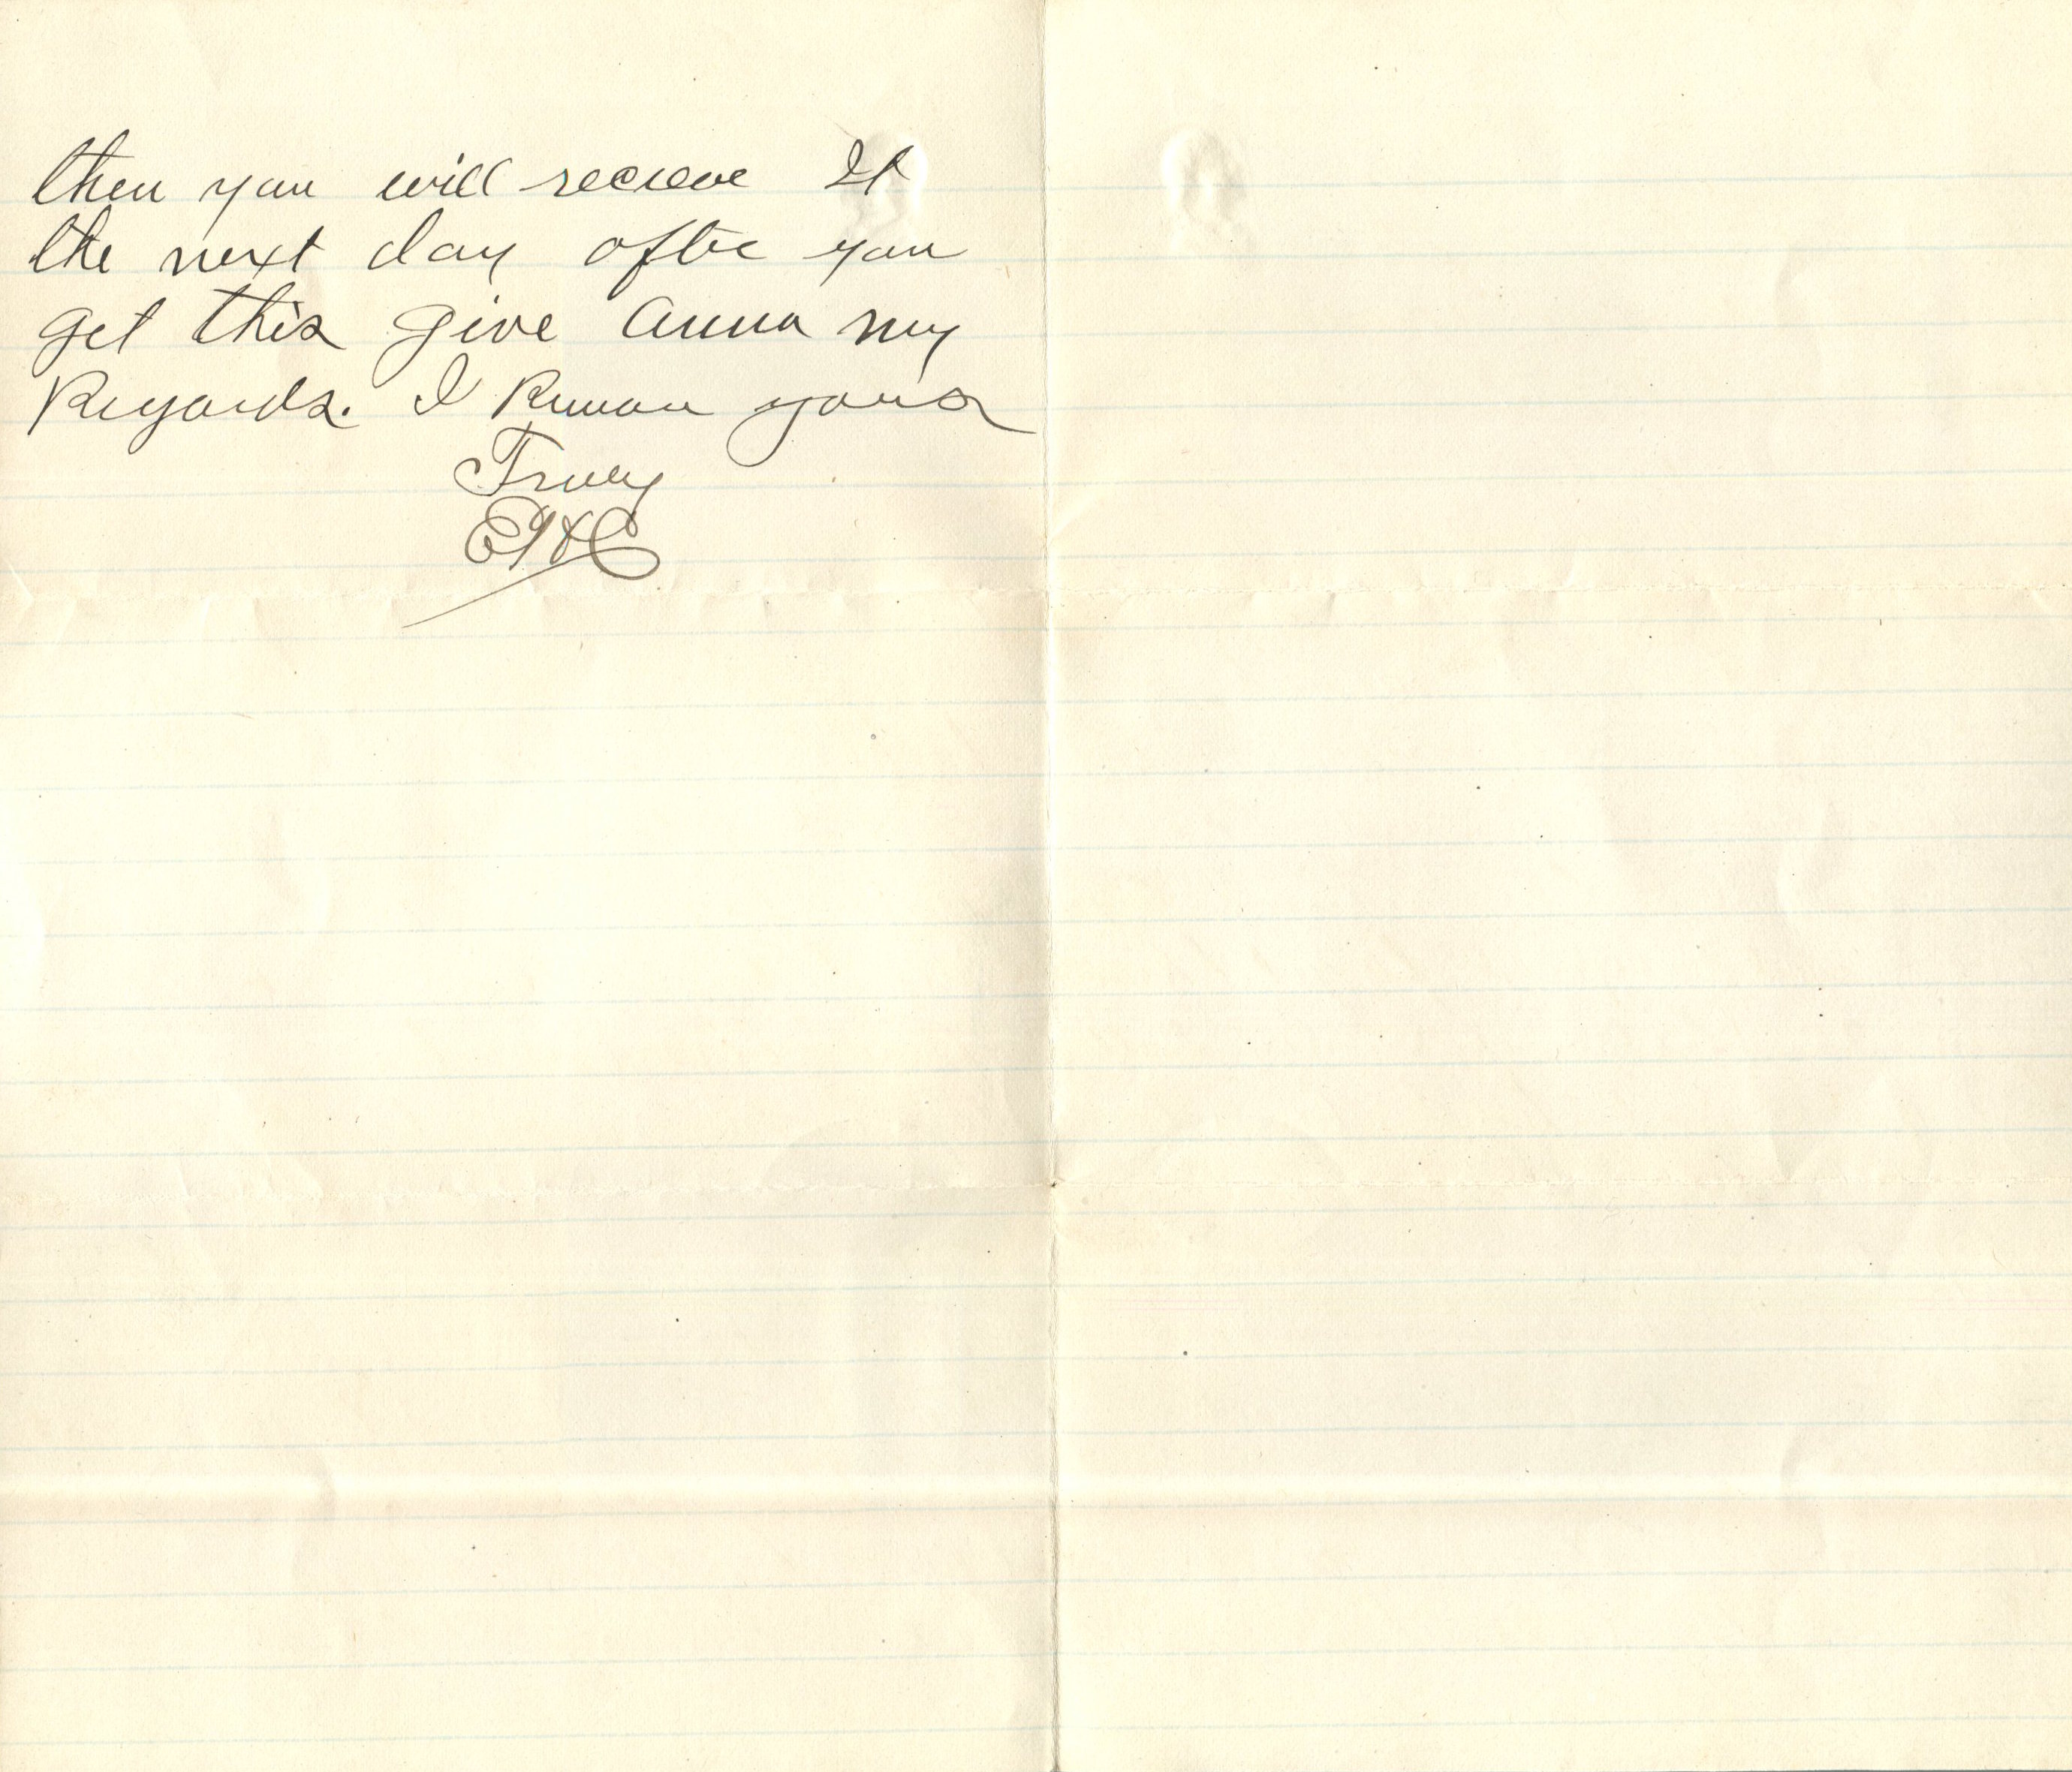 then you will recieve It
the next day afte you
get this give Anna my
Regards. I Remain yours
Truly